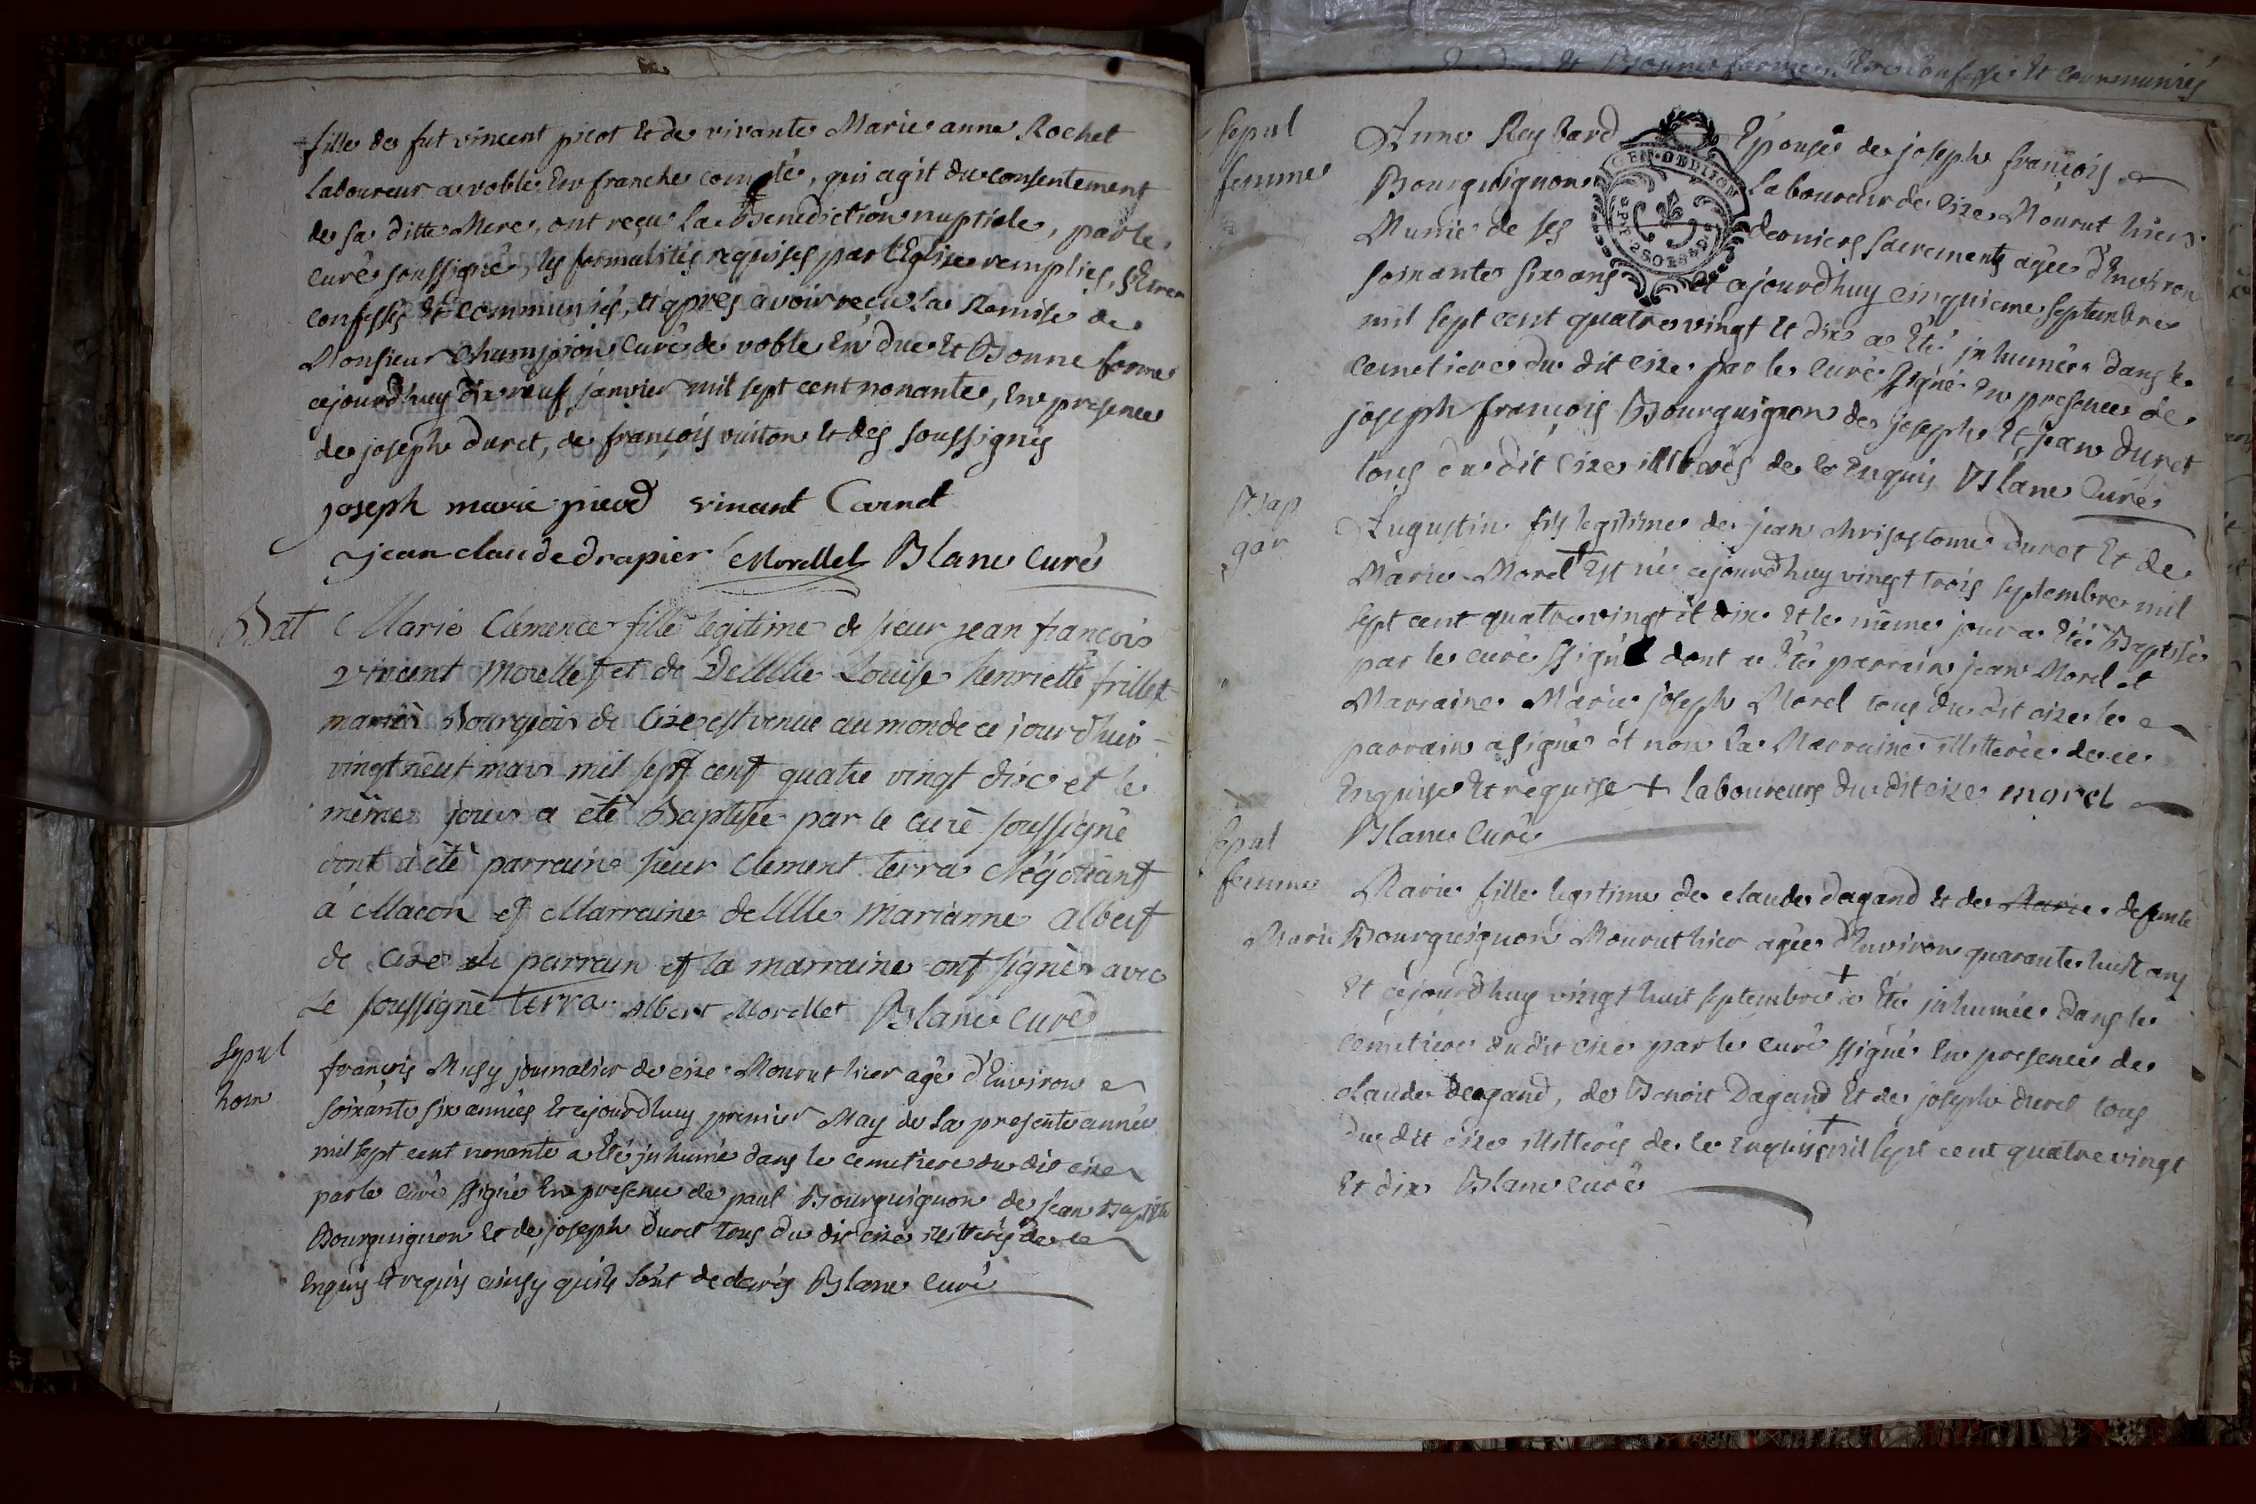 fille de fut vincent picot et de vivante Marie anne Rochet
laboureur a voble en franche comté, qui agit du consentement
de sa ditte Mere, ont reçu la Benediction nuptiale, par le
curé soussigné, les formalités requises par l'Eglise remplies, s'etre
confessés et communiés, et apres avoir reçu la Remise de
Monsieur Champion curé de voble en due et Bonne forme
cejourd'huy dix neuf janvier mil sept cent nonante, en presence
de joseph duret, de françois vuiton et des soussignés
joseph marie picod vincent Carnet
jean claude drapier Morellet Blanc curé
Bat Marie Clémence fille légitime de sieur jean francois
vincent Morellet et de Delle Louise henriette frillet
mariés Bourgeois de Cize est venue au monde ce jourd'hui
vingt neuf mars mil sept cent quatre vingt dix et le
même jour a été Baptisée par le curé soussigné
dont a été parrain sieur Clement terra Négotiant
a Macon et Marraine delle marianne albert
de Cize le parrain et la marraine ont signé avec
le soussigné terra Albert Morellet Blanc curé
Sepul
hom
françois Musy journalier de cize Mourut hier agé d'Environ
soixante six années et cejourd'huy premier May de la presente année
mil sept cent nonante a eté inhumé dans le cemetiere du dit cize
par le curé ssigné en presence de paul Bourguignon de jean Baptiste
Bourguignon et de joseph duret tous du dit cize illiterés de ce
enquis et requis ainsy quils sont declarés Blanc curé
due et Bonne forme confessé et communiés
Sepul
femme
Anne Reybard Epouse de joseph françois
Bourguignon laboureur de cize Mourut hier
Munie de ses derniers sacrements agée d'Environ
soixante six ans et ajourd'huy cinquieme septembre
mil sept cent quatre vingt et dix a eté inhumée dans le
cemetiere du dit cize par le curé ssigné en presence de
joseph françois Bourguignon de joseph et jean duret
tous du dit cize illiterés de ce enquis Blanc curé
Bap
gar
Augustin fils legitime de jean chrisostome duret et de
Marie Morel est né cejourd'huy vingt trois septembre mil
sept cent quatre vingt et dix et le même jour a eté Baptisé
par le curé ssigné dont a été parrain jean Morel et
Marraine Marie joseph Morel tous du dit cize le
parrain a signé et non la Marraine illiterée de ce
enquise et requise + laboureurs du dit cize morel
Blanc curé
Sepul
femme
Marie fille legitime de claude dagand et de Marie defunte
Marie Bourguignon Mourut hier agée d'Environ quarante huit ans
et cejourd'huy vingt huit septembre + a eté inhumée dans le
cémetiere du dit cize par le curé ssigné en presence de
claude dagand, de Benoit Dagand et de joseph duret tous
du dit cize illiterés de ce enquis + mil sept cent quatre vingt
et dix Blanc curé